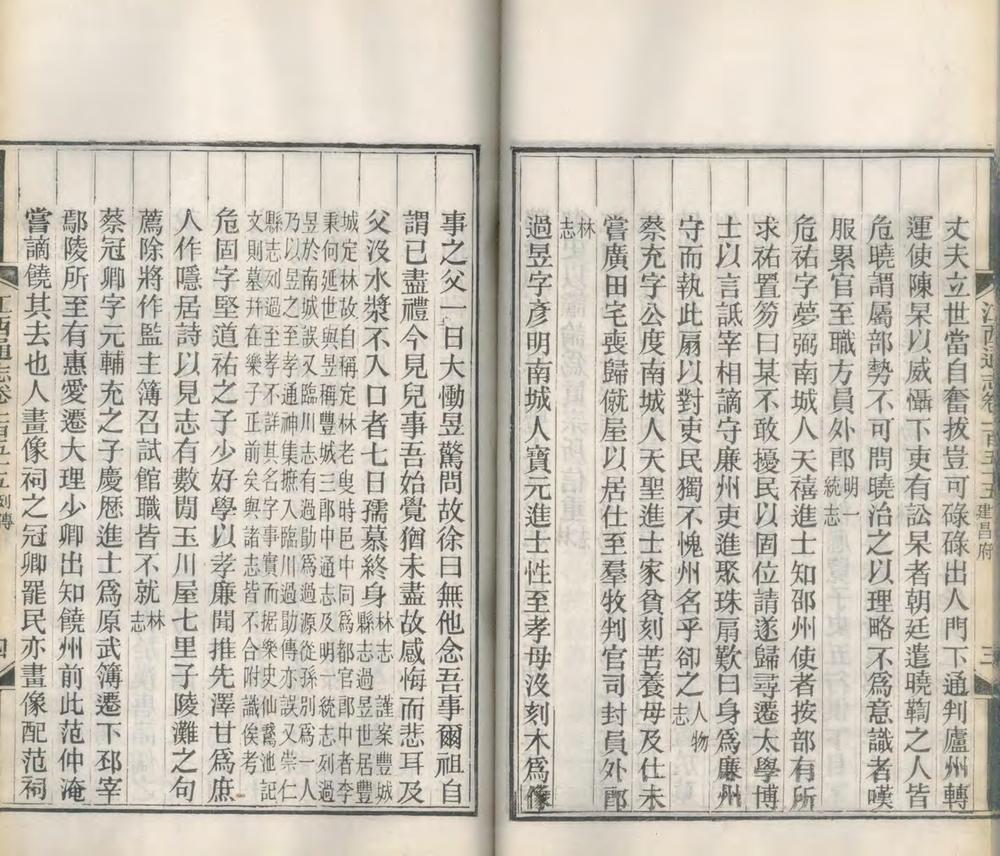 丈夫立世當自奮拔豈可碌碌出人門下通判廬州轉
運使陳杲以威懾下吏有訟杲者朝廷遣曉鞫之人皆
危曉謂屬部勢不可問曉治之以理略不爲意識者嘆
服累官至職方員外郎明一統志
危祐字夢弼南城人天禧進士知邵州使者按部有所
求祐置笏曰某不敢擾民以固位請遂歸尋遷太學博
士以言詆宰相謫守廉州吏進聚珠扇歎曰身爲廉州
守而執此扇以對吏民獨不愧州名乎卻之人物志
蔡充字公度南城人天聖進士家貧刻苦養母及仕未
嘗廣田宅喪歸僦屋以居仕至羣牧判官司封員外郎
林志
過昱字彥明南城人寶元進士性至孝母没刻木爲像
江西通志卷一百五十五 建昌府 三
事之父一日大慟昱驚問故徐曰無他念吾事爾祖自
謂已盡禮今見兒事吾始覺猶未盡故感悔而悲耳及
父没水漿不入口者七日孺慕終身林志 謹案豐城
縣志過昱世居豐
城定林故自稱定林老叟時邑中同爲都官郎中者李
秉何延世與昱稱豐城三郎中通志及明一統志列過
昱於南城誤又臨川志有過勛爲過源從孫別爲一人
乃以昱之至孝通神集摭入臨川過勛傳亦誤又崇仁
縣志列過至孝不詳其名字事實而据樂史仙鷖池記
文則墓并在樂子正前矣與諸志皆不合附識俟考
危固字堅道祐之子少好學以孝廉聞推先澤甘爲庶
人作隱居詩以見志有數閒玉川屋七里子陵灘之句
薦除將作監主簿召試館職皆不就林志
蔡冠卿字元輔充之子慶歷進士爲原武簿遷下邳宰
鄢陵所至有惠愛遷大理少卿出知饒州前此范仲淹
嘗謫饒其去也人畫像祠之冠卿罷民亦畫像配范祠
江西通志卷一百五十五 列傳 四